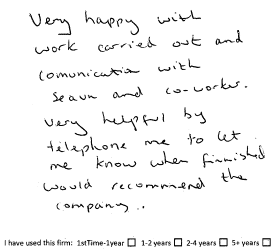 Very happy with
work carried out and
comunication with
Seaun and co-worker.
Very helpful by
telephone me to let
me know when finnished
would recommend the
company.
I have used this firm: 1stTime-1year ☐ 1-2 years ☐ 2-4 years ☐ 5+ years ☐